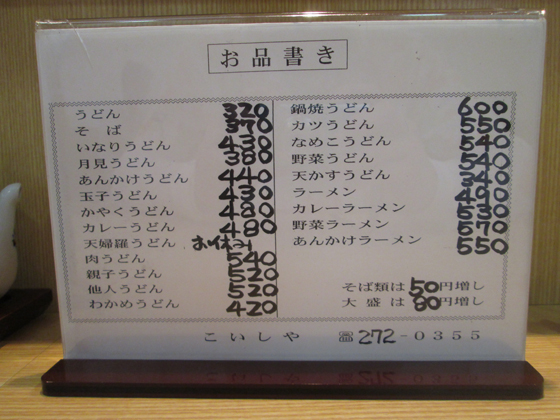 お品書き
うどん 320
そば 370
いなりうどん 430
月見うどん 380
あんかけうどん 440
玉子うどん 430
かやくうどん 480
カレーうどん 480
天婦羅うどん お休み
肉うどん 540
親子うどん 520
他人うどん 520
わかめうどん 420
鍋焼うどん 600
カツうどん 550
なめこうどん 540
野菜うどん 540
天かすうどん 340
ラーメン 490
カレーラーメン 530
野菜ラーメン 570
あんかけラーメン 550
そば類は50円増し
大盛は80円増し
こいしや ☏272-0355